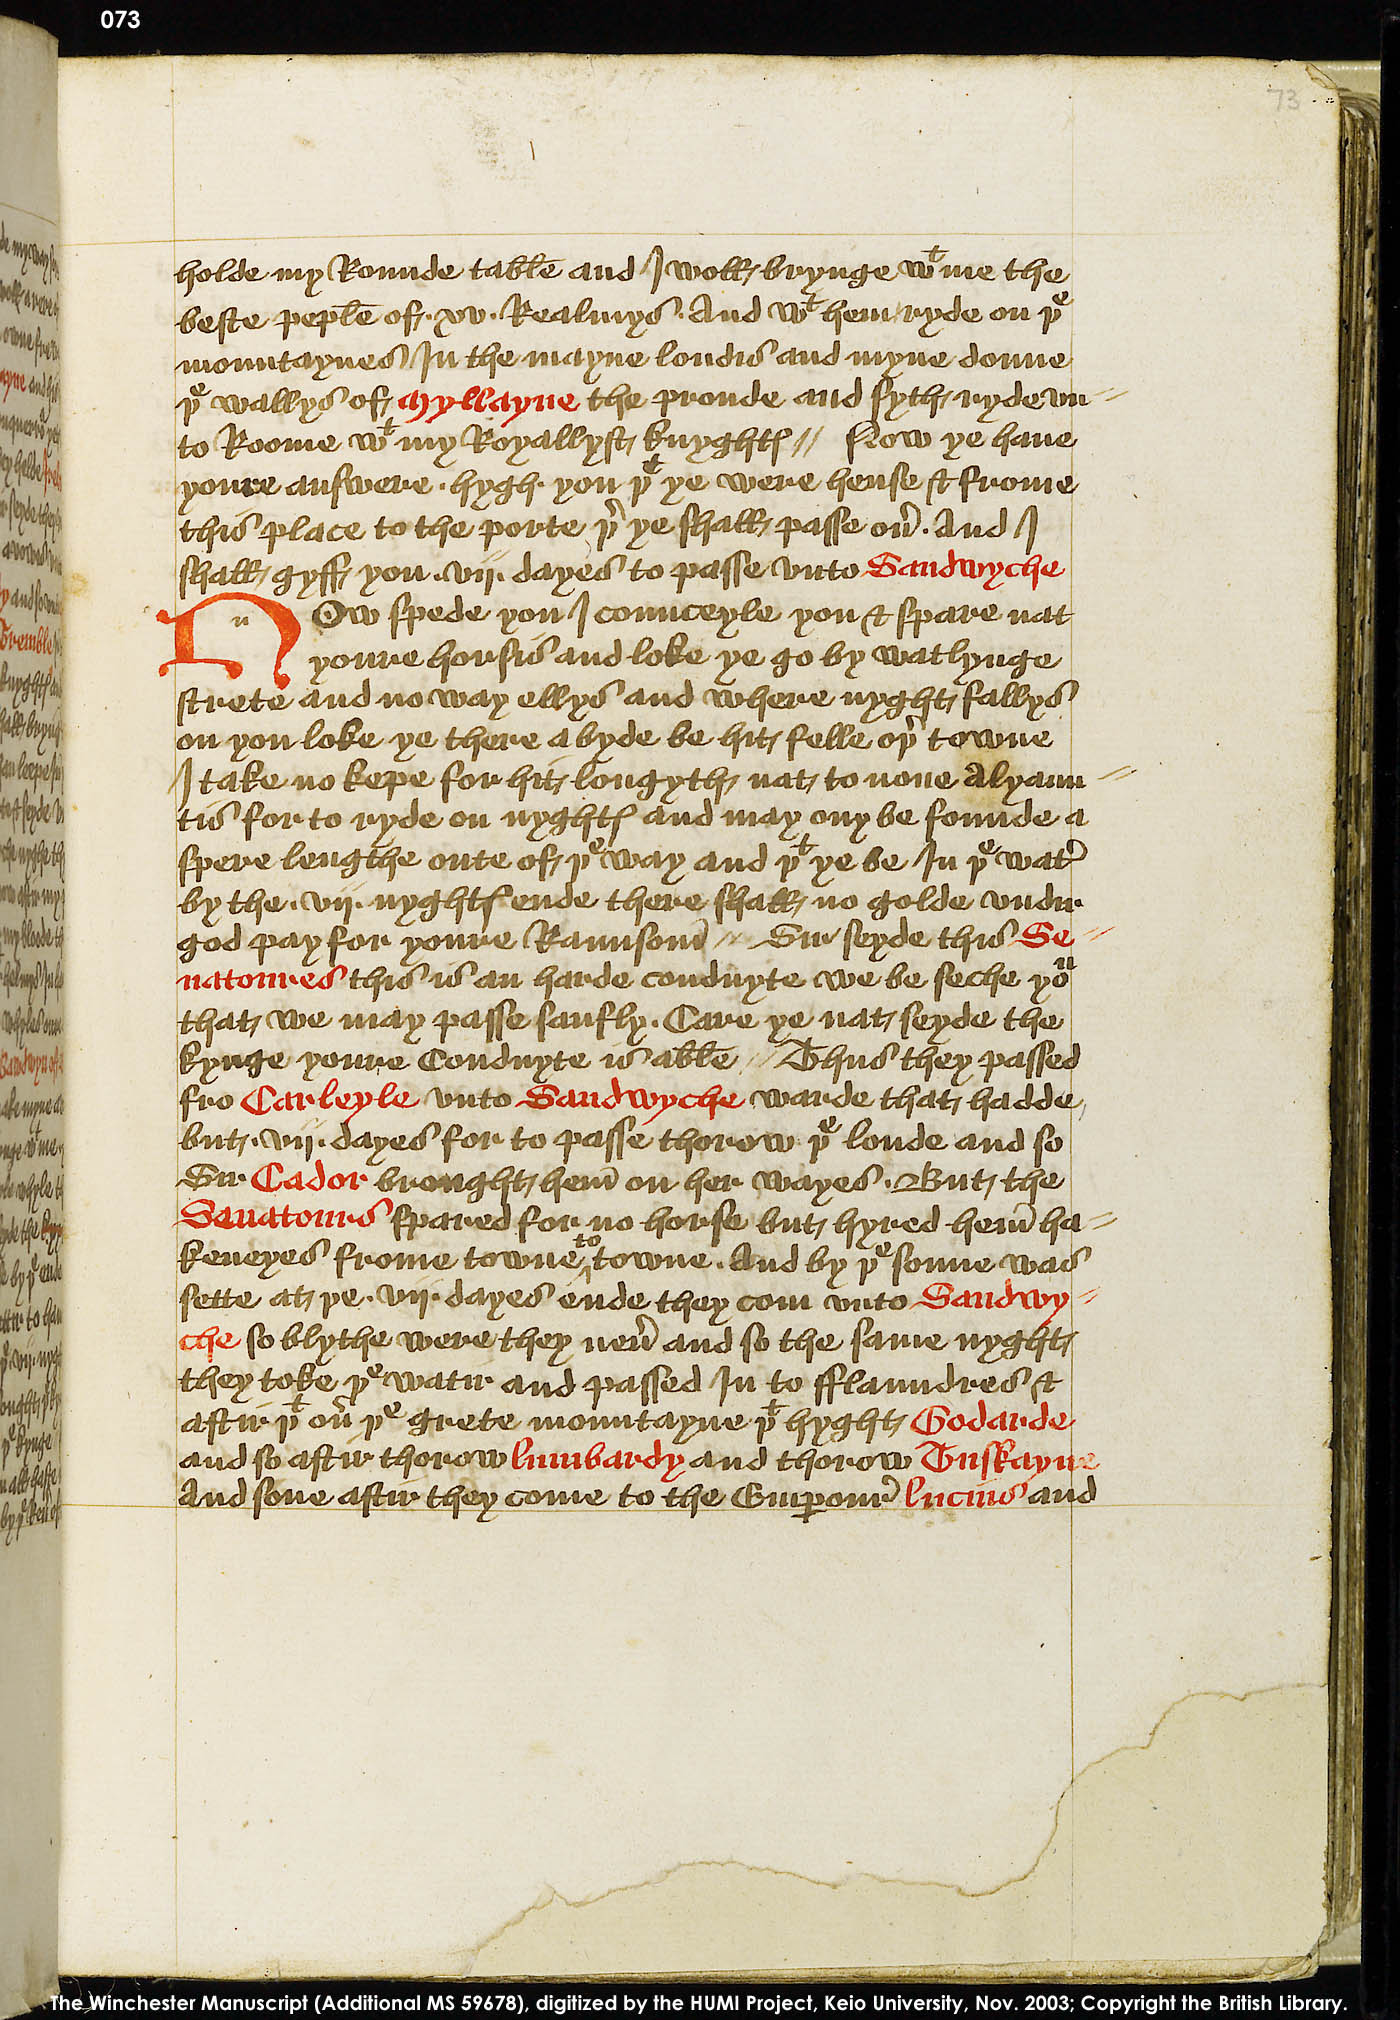 073
73
holde my Rounde table and I woll brynge wͭ me the
beste peple of .xv. Realmys. And wͭ hem ryde on þͤ
mountaynes In the mayne londis and myne doune
þͤ wallys of Myllayne the proude and syth ryde vn
to Roome wͭ my Royallyst knyghtꝭ // Now ye haue
youre answere . hygh you þͭ ye were hense & frome
this place to the porte þʳ ye shall passe ouʳ. And I
shall gyff you .vij. dayes to passe vnto Sandwyche
NOw spede you I counceyle you & spare nat
youre horsis and loke ye go by watlynge
strete and no way ellys and where nyght fallys
on you loke ye there abyde be hit felle oþʳ towne
I take no kepe for hit longyth nat to none Alyaun
tis for to ryde on nyghtꝭ and may ony be founde a
spere lengthe oute of þͤ way and þͭ ye be In þͤ watʳ
by the .vij. nyghtꝭ ende there shall no golde vndir
god pay for youre Raunsom̄ // Sir seyde this Se
natoures this is an harde conduyte we be seche yoᵘ
that we may passe saufly. Care ye nat seyde the
kynge youre Conduyte is able // Thus they passed
fro Carleyle vnto Sandwyche warde that hadde
but .vij. dayes for to passe thorow þͤ londe and so
Sir Cador brought hem̄ on her wayes. But the
Sanatours spared for no horse but hyred hem̄ ha
keneyes frome towne to towne. And by þͤ sonne was
sette at þe .vij. dayes ende they com vnto Sandwy
che so blythe were they neuʳ and so the same nyght
they toke þͤ watir and passed In to fflaundres &
aftir þͭ ouʳ þͤ grete mountayne þͭ hyght Godarde
and so aftir thorow lumbardy and thorow Tuskayne
And sone aftir they come to the Emꝑourʳ lucius and
The Winchester Manuscript (Additional MS 59678), digitized by the HUMI Project, Keio University, Nov. 2003; Copyright the British Library.